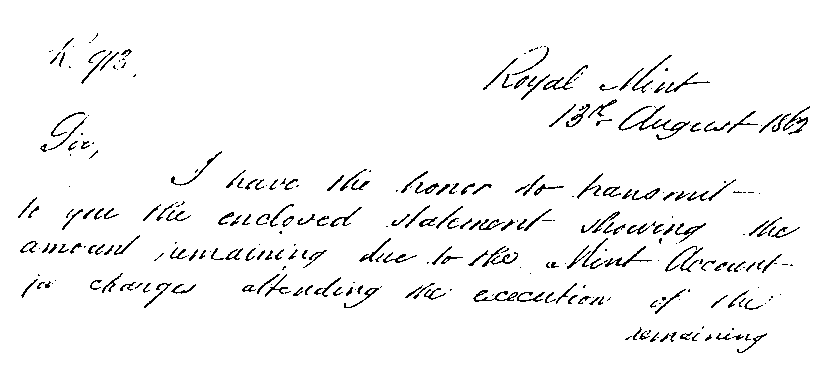 K. 913.
Royal Mint
13th August 1862
Sir,
I have the honor to transmit
to you the enclosed statement showing the
amount remaining due to the Mint Account
for charges attending the execution of the
remaining